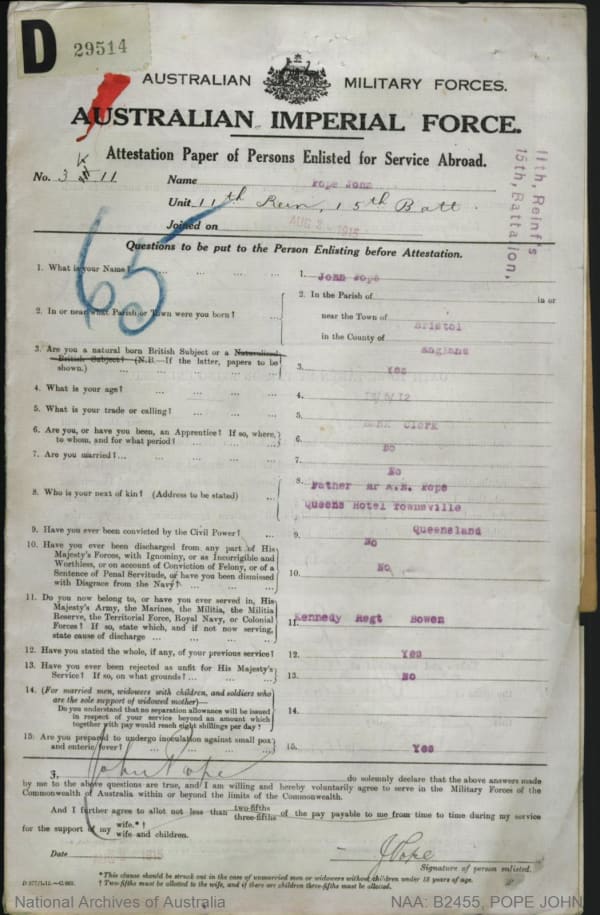 D 29514
AUSTRALIAN MILITARY FORCES.
AUSTRALIAN IMPERIAL FORCE.
Attestation Paper of Persons Enlisted for Service Abroad.
No. 3 K 11
Name Pope John
Unit 11th Rein, 15th Batt
Joined on AUG 1915
11th, Reinf's
15th, Battalion,
65
Questions to be put to the Person Enlisting before Attestation.
1. What is your Name? ... ... ... 1. John Pope
2. In or near what Parish or Town were you born? ... 2. In the Parish of in or
near the Town of Bristol
in the County of England
3. Are you a natural born British Subject or a Naturalized
British Subject? (N.B.—If the latter, papers to be
shown.) ... ... ... 3. Yes
4. What is your age? ... ... ... 4.
5. What is your trade or calling? ... ... ... 5. Clerk
6. Are you, or have you been, an Apprentice? If so, where,
to whom, and for what period? ... ... 6. No
7. Are you married?... ... ... ... 7. No
8. Who is your next of kin? (Address to be stated) ... 8. Father Mr Pope
Queens Hotel Townsville
Queensland
9. Have you ever been convicted by the Civil Power? ... 9. No
10. Have you ever been discharged from any part of His
Majesty's Forces, with Ignominy, or as Incorrigible and
Worthless, or on account of Conviction of Felony, or of a
Sentence of Penal Servitude, or have you been dismissed
with Disgrace from the Navy? ... ... 10. No
11. Do you now belong to, or have you ever served in, His
Majesty's Army, the Marines, the Militia, the Militia
Reserve, the Territorial Force, Royal Navy, or Colonial
Forces? If so, state which, and if not now serving,
state cause of discharge ... ... 11. Kennedy Regt Bowen
12. Have you stated the whole, if any, of your previous service? 12. Yes
13. Have you ever been rejected as unfit for His Majesty's
Service? If so, on what grounds? ... ... 13. No
14. (For married men, widowers with children, and soldiers who
are the sole support of widowed mother)—
Do you understand that no separation allowance will be issued
in respect of your service beyond an amount which
together with pay would reach eight shillings per day? 14.
15. Are you prepared to undergo inoculation against small pox
and enteric fever? ... ... ... 15. Yes
I, John Pope do solemnly declare that the above answers made
by me to the above questions are true, and I am willing and hereby voluntarily agree to serve in the Military Forces of the
Commonwealth of Australia within or beyond the limits of the Commonwealth.
And I further agree to allot not less than two-fifths three-fifths of the pay payable to me from time to time during my service
for the support of my wife.*†
wife and children.
Date 1915
J Pope
Signature of person enlisted.
*This clause should be struck out in the case of unmarried men or widowers without children under 18 years of age.
† Two-fifths must be allotted to the wife, and if there are children three-fifths must be allotted.
National Archives of Australia
NAA: B2455, POPE JOHN